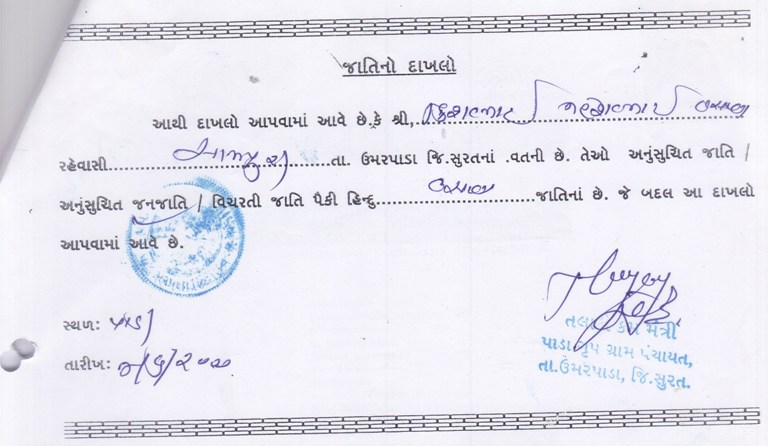 જાતિનો દાખલો
આથી દાખલો આપવામાં આવે છે.કે શ્રી, વસાવા
રહેવાસી તા. ઉમરપાડા જિ.સુરતનાં .વતની છે. તેઓ અનુંસુચિત જાતિ /
અનુંસુચિત જનજાતિ / વિચરતી જાતિ પૈકી હિન્દુ વસાવા જાતિનાં છે. જે બદલ આ દાખલો
આપવામાં આવે છે.
સ્થળ: પાડા
તલાટી કમ મંત્રી
પાડા ગૃપ ગ્રામ પંચાયત,
તારીખ:
તા.ઉમરપાડા, જિ.સુરત.